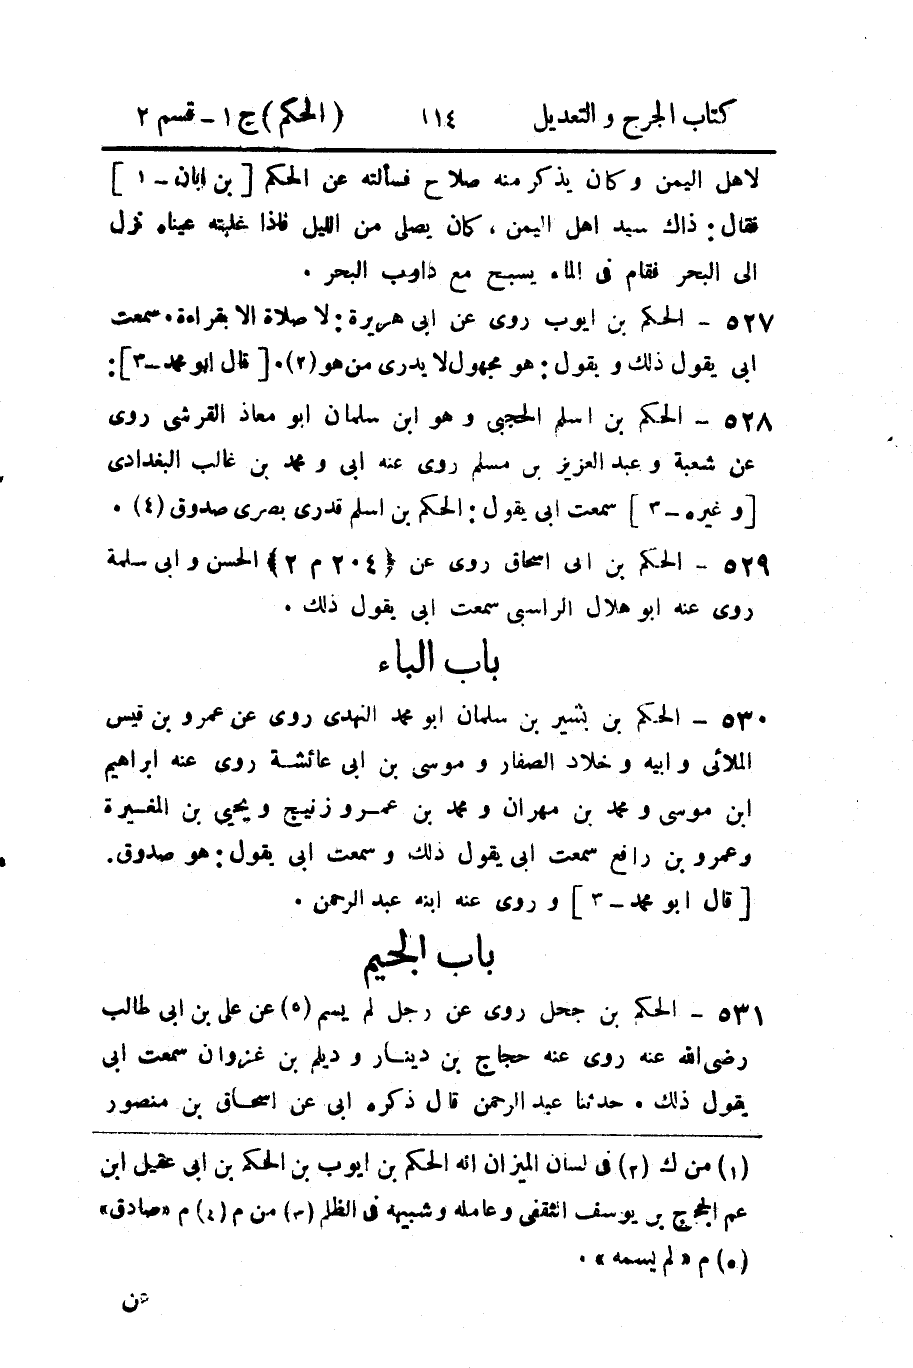 كتاب الجرح و التعديل ١١٤ (الحكم) ج ١ - قسم ٢
لاهل اليمن و كان يذكر منه صلاح فسألته عن الحكم [ بن ابان - ١ ]
فقال: ذاك سيد اهل اليمن ، كان يصلى من الليل فاذا غلبته عيناه نزل
الى البحر فقام فى الماء يسبح مع دواب البحر .
٥٢٧ - الحكم بن ايوب روى عن ابى هريرة: لا صلاة الا بقراءة. سمعت
ابى يقول ذلك و يقول: هو مجهول لا يدرى من هو (٢). [ قال ابو محمد - ٣]:
٥٢٨ - الحكم بن اسلم الحجبى و هو ابن سلمان ابو معاذ القرشى روى
عن شعبة و عبد العزيز بن مسلم روى عنه ابى و محمد بن غالب البغدادى
[ و غيره - ٣ ] سمعت ابى يقول: الحكم بن اسلم قدرى بصرى صدوق (٤) .
٥٢٩ - الحكم بن ابى اسحاق روى عن ﴿٢٠٤ م ٢﴾ الحسن و ابى سلمة
روى عنه ابو هلال الراسبى سمعت ابى يقول ذلك .
باب الباء
٥٣٠ - الحكم بن بشير بن سلمان ابو محمد النهدى روى عن عمرو بن قيس
الملائى و ابيه و خلاد الصفار و موسى بن ابى عائشة روى عنه ابراهيم
ابن موسى و محمد بن مهران و محمد بن عمرو زنيج و يحيى بن المغيرة
وعمرو بن رافع سمعت ابى يقول ذلك و سمعت ابى يقول: هو صدوق.
[ قال ابو محمد - ٣ ] و روى عنه ابنه عبد الرحمن .
باب الجيم
٥٣١ - الحكم بن جحل روى عن رجل لم يسم (٥) عن على بن ابى طالب
رضى الله عنه روى عنه حجاج بن دينار و ديلم بن غزوان سمعت ابى
يقول ذلك . حدثنا عبد الرحمن قال ذكره ابى عن اسحاق بن منصور
(١) من ك (٢) فى لسان الميزان انه الحكم بن ايوب بن الحكم بن ابى عقيل ابن
عم الحجاج بن يوسف الثقفى و عامله و شبيهه فى الظلم (٣) من م (٤) م «صادق»
(٥) م « لم يسمه » .
ثن